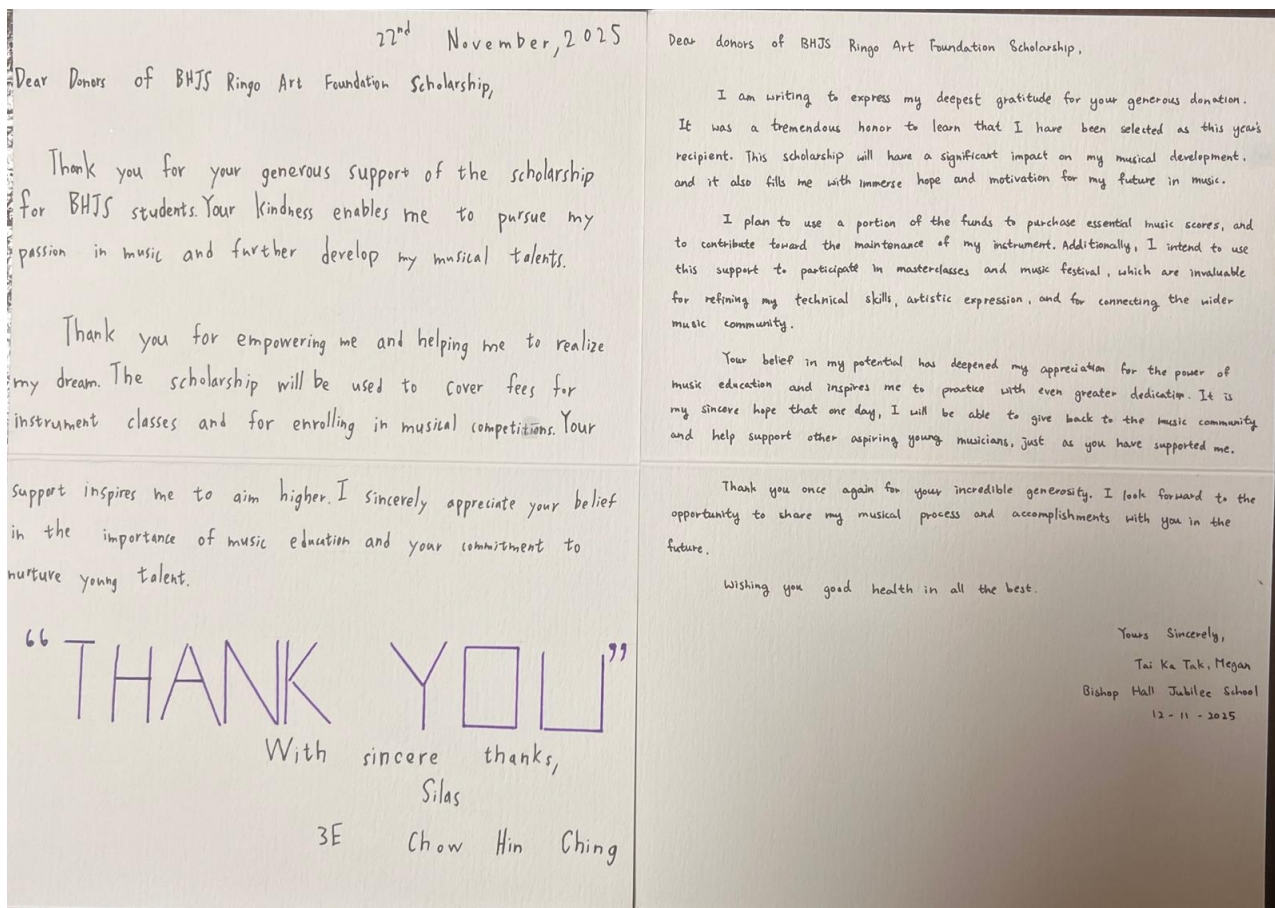 22nd November, 2025
Dear Donors of BHJS Ringo Art Foundation Scholarship,
Thank you for your generous support of the scholarship
for BHJS students. Your kindness enables me to pursue my
passion in music and further develop my musical talents.
Thank you for empowering me and helping me to realize
my dream. The scholarship will be used to cover fees for
instrument classes and for enrolling in musical competitions. Your
support inspires me to aim higher. I sincerely appreciate your belief
in the importance of music education and your commitment to
nurture young talent.
“THANK YOU”
With sincere thanks,
Silas
3E Chow Hin Ching
Dear donors of BHJS Ringo Art Foundation Scholarship,
I am writing to express my deepest gratitude for your generous donation.
It was a tremendous honor to learn that I have been selected as this year's
recipient. This scholarship will have a significant impact on my musical development.
and it also fills me with immerse hope and motivation for my future in music.
I plan to use a portion of the funds to purchase essential music scores, and
to contribute toward the maintenance of my instrument. Additionally, I intend to use
this support to participate in masterclasses and music festival, which are invaluable
for refining my technical skills, artistic expression, and for connecting the wider
music community.
Your belief in my potential has deepened my appreciation for the power of
music education and inspires me to practice with even greater dedication. It is
my sincere hope that one day, I will be able to give back to the music community
and help support other aspiring young musicians, just as you have supported me.
Thank you once again for your incredible generosity. I look forward to the
opportunity to share my musical process and accomplishments with you in the
future.
Wishing you good health in all the best.
Yours Sincerely,
Tai Ka Tak, Megan
Bishop Hall Jubilee School
12-11-2025